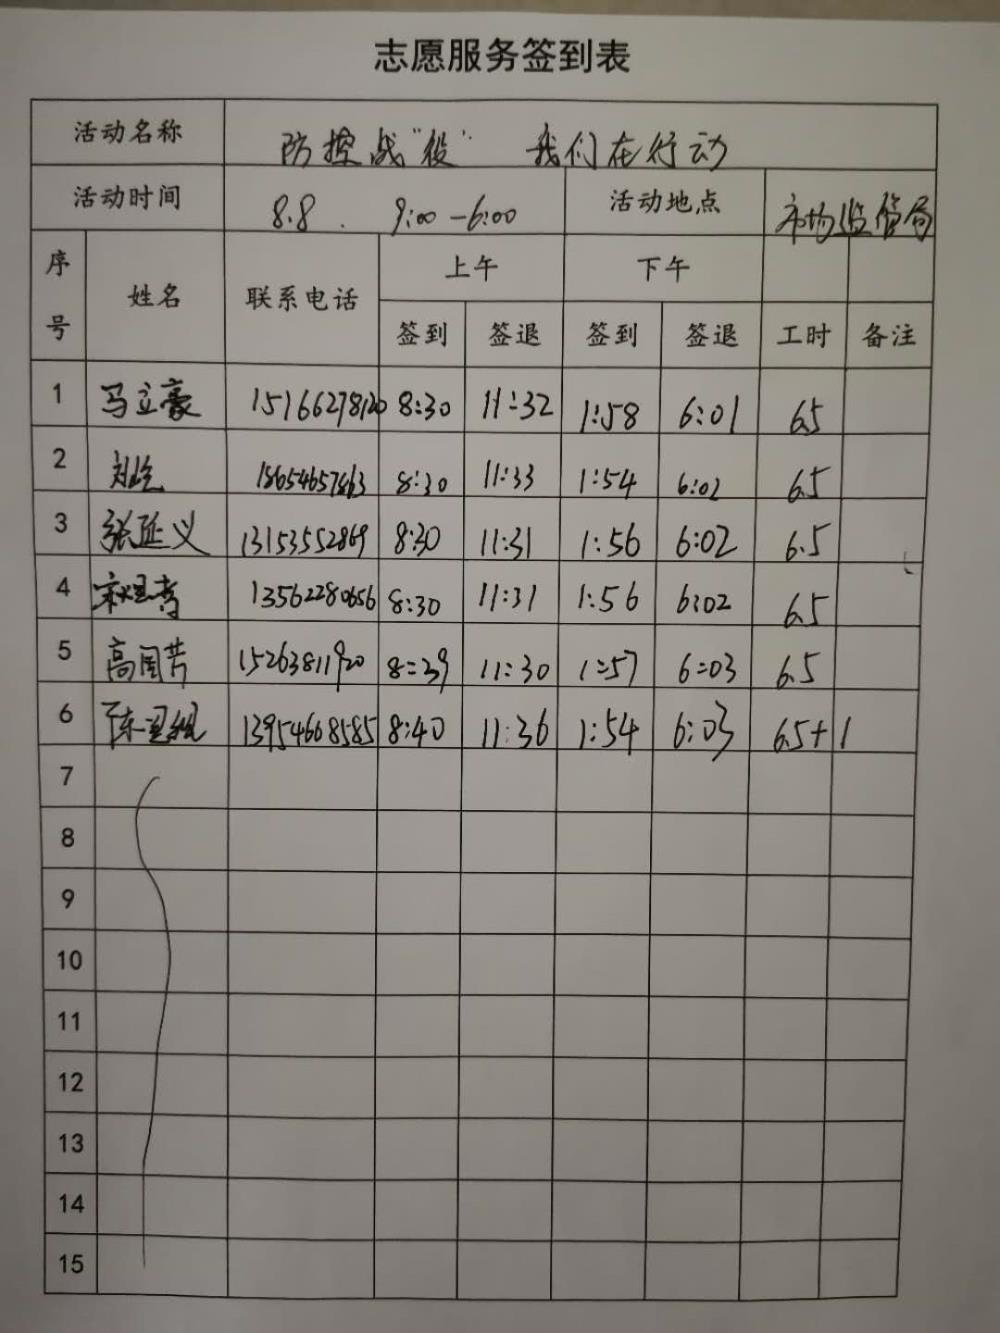 志愿服务签到表
活动名称 防控战"役" 我们在行动
活动时间 8.8. 9:00-6:00 活动地点 市场监管局
序号 姓名 联系电话 上午 下午
签到 签退 签到 签退 工时 备注
1 马立豪 15166278120 8:30 11:32 1:58 6:01 6.5
2 18654657863 8:30 11:33 1:54 6:02 6.5
3 张延义 13153552869 8:30 11:31 1:56 6:02 6.5
4 13562280656 8:30 11:31 1:56 6:02 6.5
5 高国芳 15263811920 8:39 11:30 1:57 6:03 6.5
6 13954668585 8:40 11:36 1:54 6:03 6.5+1
7
8
9
10
11
12
13
14
15